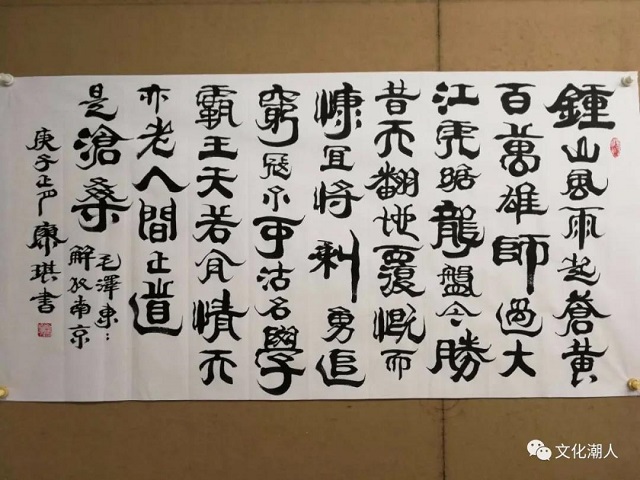 鍾山風雨起蒼黄
百萬雄師過大
江虎踞龍盤今勝
昔天翻地覆慨而
慷宜將剩勇追
窮寇不可沽名學
霸王天若有情天
亦老人間正道
是滄桑
毛澤東：
解放南京
庚子正月廖琪書
文化潮人